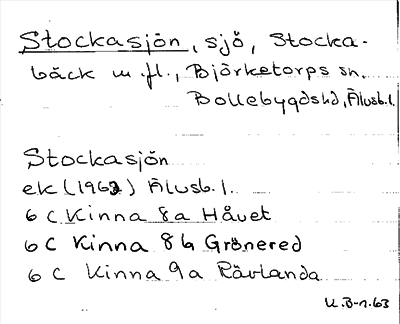 Stockasjön, sjö, Stocka-
bäck m.fl., Björketorps sn,
Bollebygds hd, Älvsb.l.
Stockasjön
ek (1962) Älvsb.l.
6 C Kinna 8a Håvet
6 C Kinna 8b Grönered
6 C Kinna 9a Rävlanda
U.B-n.63